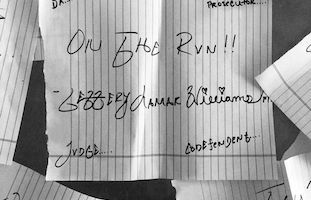 DR... PROSECUTOR....
ON THE RUN!!
JEFFERY LAMAR Williams
JUDGE..... CODEFENDENT....